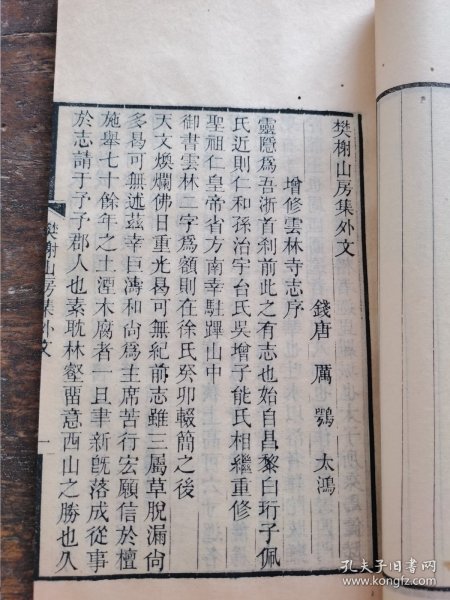 樊榭山房集外文
錢唐 厲 鶚 太鴻
增修雲林寺志序
靈隱爲吾浙首刹前此之有志也始自昌黎白珩子佩
氏近則仁和孫治宇台氏吳增子能氏相繼重修
聖祖仁皇帝省方南幸駐蹕山中
御書雲林二字爲額則在徐氏癸卯輟簡之後
天文煥爛佛日重光曷可無紀前志雖三屬草脫漏尙
多曷可無述茲幸巨濤和尙爲主席苦行宏願信於檀
施舉七十餘年之土湮木腐者一旦聿新旣落成從事
於志請于予予郡人也素耽林壑畱意西山之勝也久
樊榭山房集外文
一
孔夫子旧书网
book.kongfz.com